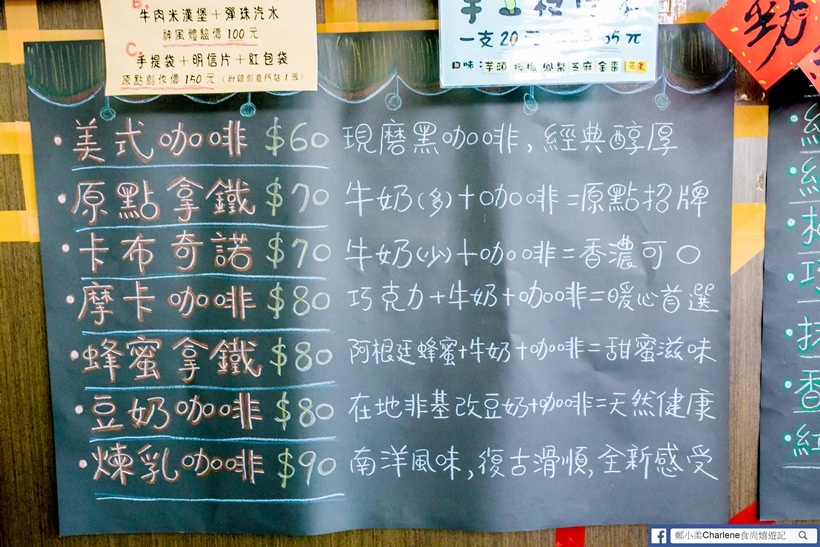 B.
牛肉米漢堡+彈珠汽水
神駕體驗價 100 元
C.
手提袋+明信片+紅包袋
原點創作價 150 元
一支20元
35元
口味:芋頭
芝麻
美式咖啡 $60 現磨黑咖啡,經典醇厚
原點拿鐵 $70 牛奶(多)+咖啡=原點招牌
卡布奇諾 $70 牛奶(少)+咖啡=香濃可口
摩卡咖啡 $80 巧克力+牛奶+咖啡=暖心首選
蜂蜜拿鐵 $80 阿根廷蜂蜜+牛奶+咖啡=甜蜜滋味
豆奶咖啡 $80 在地非基改豆奶+咖啡=天然健康
煉乳咖啡 $90 南洋風味,復古滑順,全新感受
香
紅
鄭小柔Charlene食尚嬉遊記